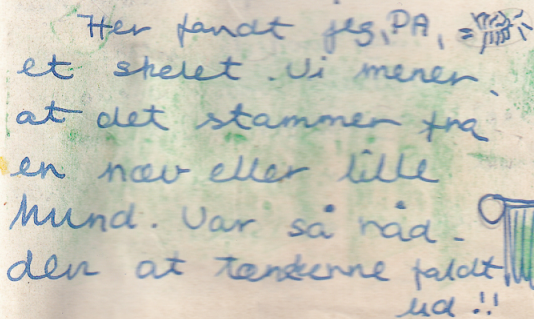 Her fandt jeg, PA,
et skelet. Vi mener
at det stammer fra
en ræv eller lille
hund. Var så råd-
den at tænderne faldt
ud!!